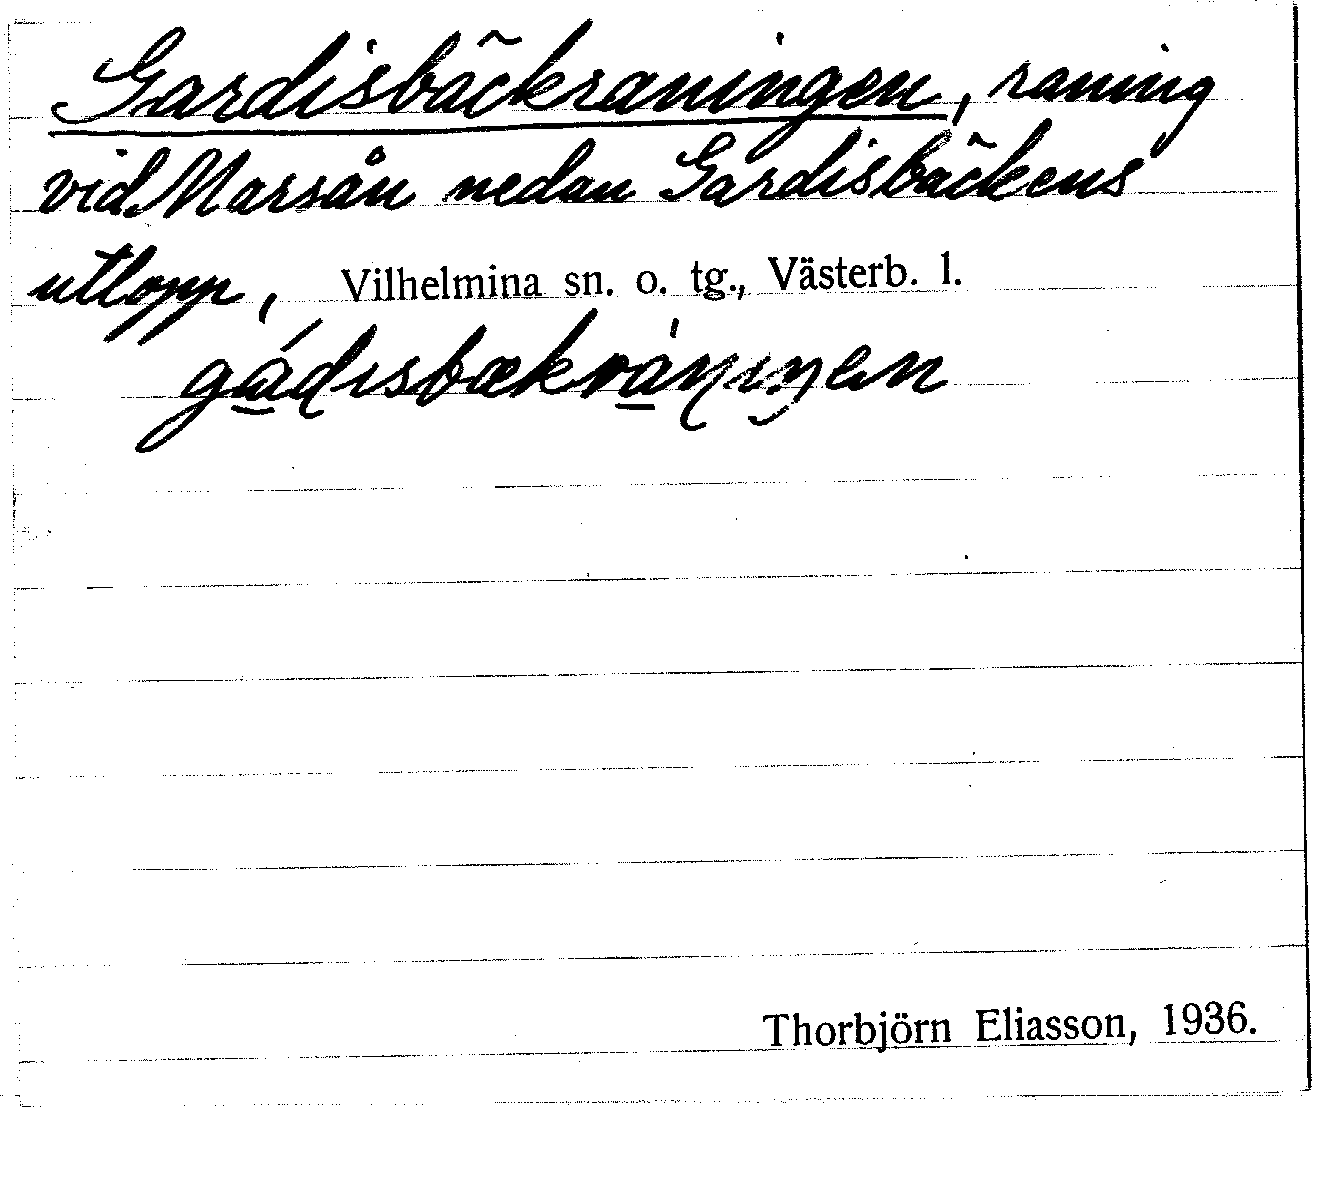 Gardisbäckraningen, raning
vid Marsån nedan Gardisbäckens
utlopp, Vilhelmina sn. o. tg., Västerb. l.
Thorbjörn Eliasson, 1936.